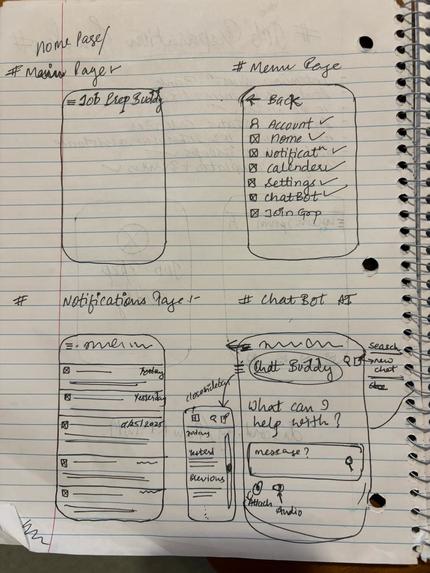 Home Page/
# Main Page
≡ Job Prep Buddy
# Menu Page
← Back
Account ✓
Home ✓
Notificatn ✓
Calender ✓
Settings ✓
ChatBot ✓
Join Grp
# Notifications Page :-
Today
Yesterday
# ChatBot AI
Chat Buddy
What can I
help with?
message?
Attach
Audio
search
new
chat
Today
Previous